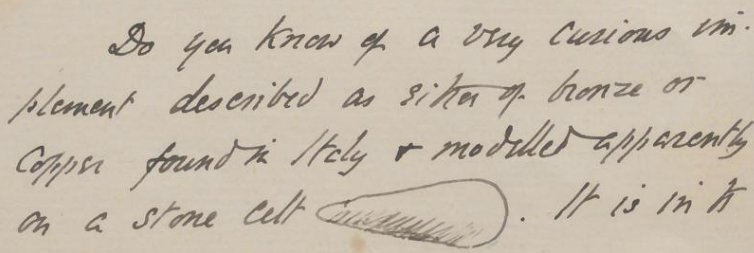 Do you know of a very curious im-
plement described as either of bronze or
copper found in Italy & modelled apparently
on a stone celt . It is in th